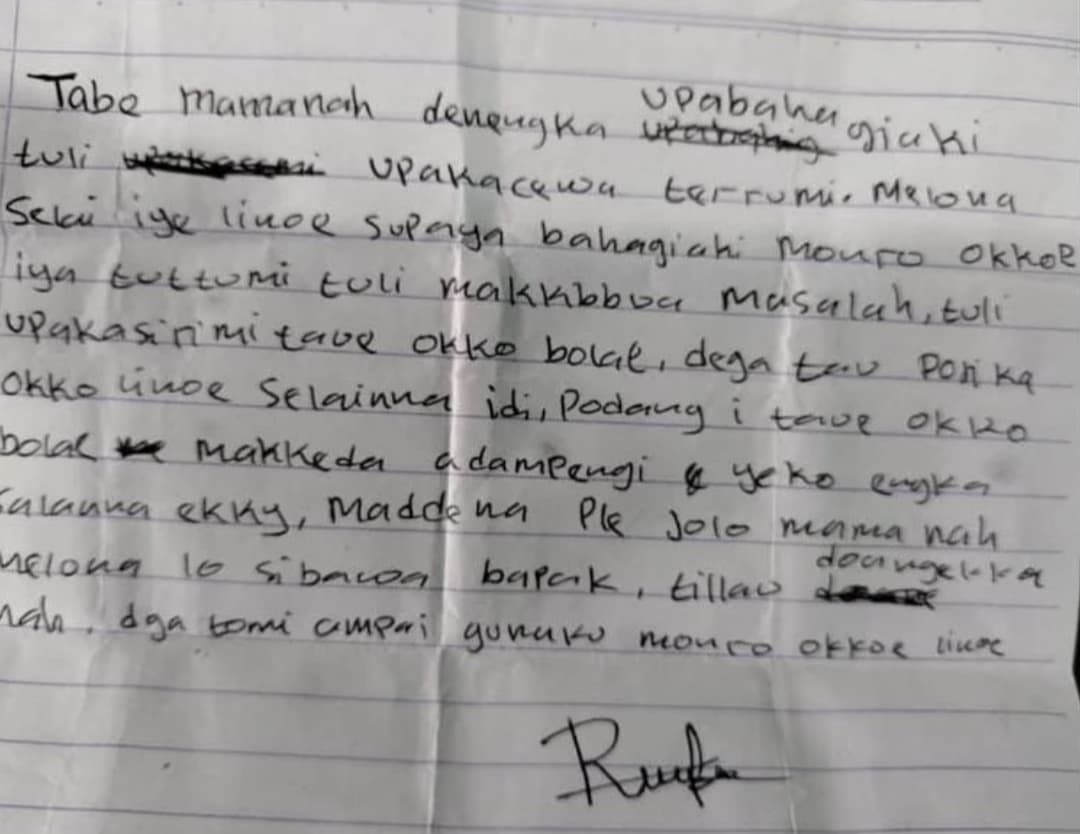 Tabe mamanah denengka upabaha giaki
tuli upakacewa terrumi. Melona
Selai iye linoe supaya bahagiaki monro okkoe
iya tuttumi tuli makkibbua masalah, tuli
upakasirimi taue okko bolae, dega tau Pori ka
okko linoe Selainna idi, Podang i taue okko
bolae makkeda adampengi yeko engka
salanna ekky, Maddena Ple jolo mama nah
melona lo sibawa bapak, tillau doangekka
nah. dga tomi ampai gunaku monro okkoe linoe